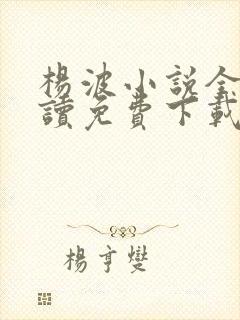 楊波小說全
讀免費下載
楊亨燮